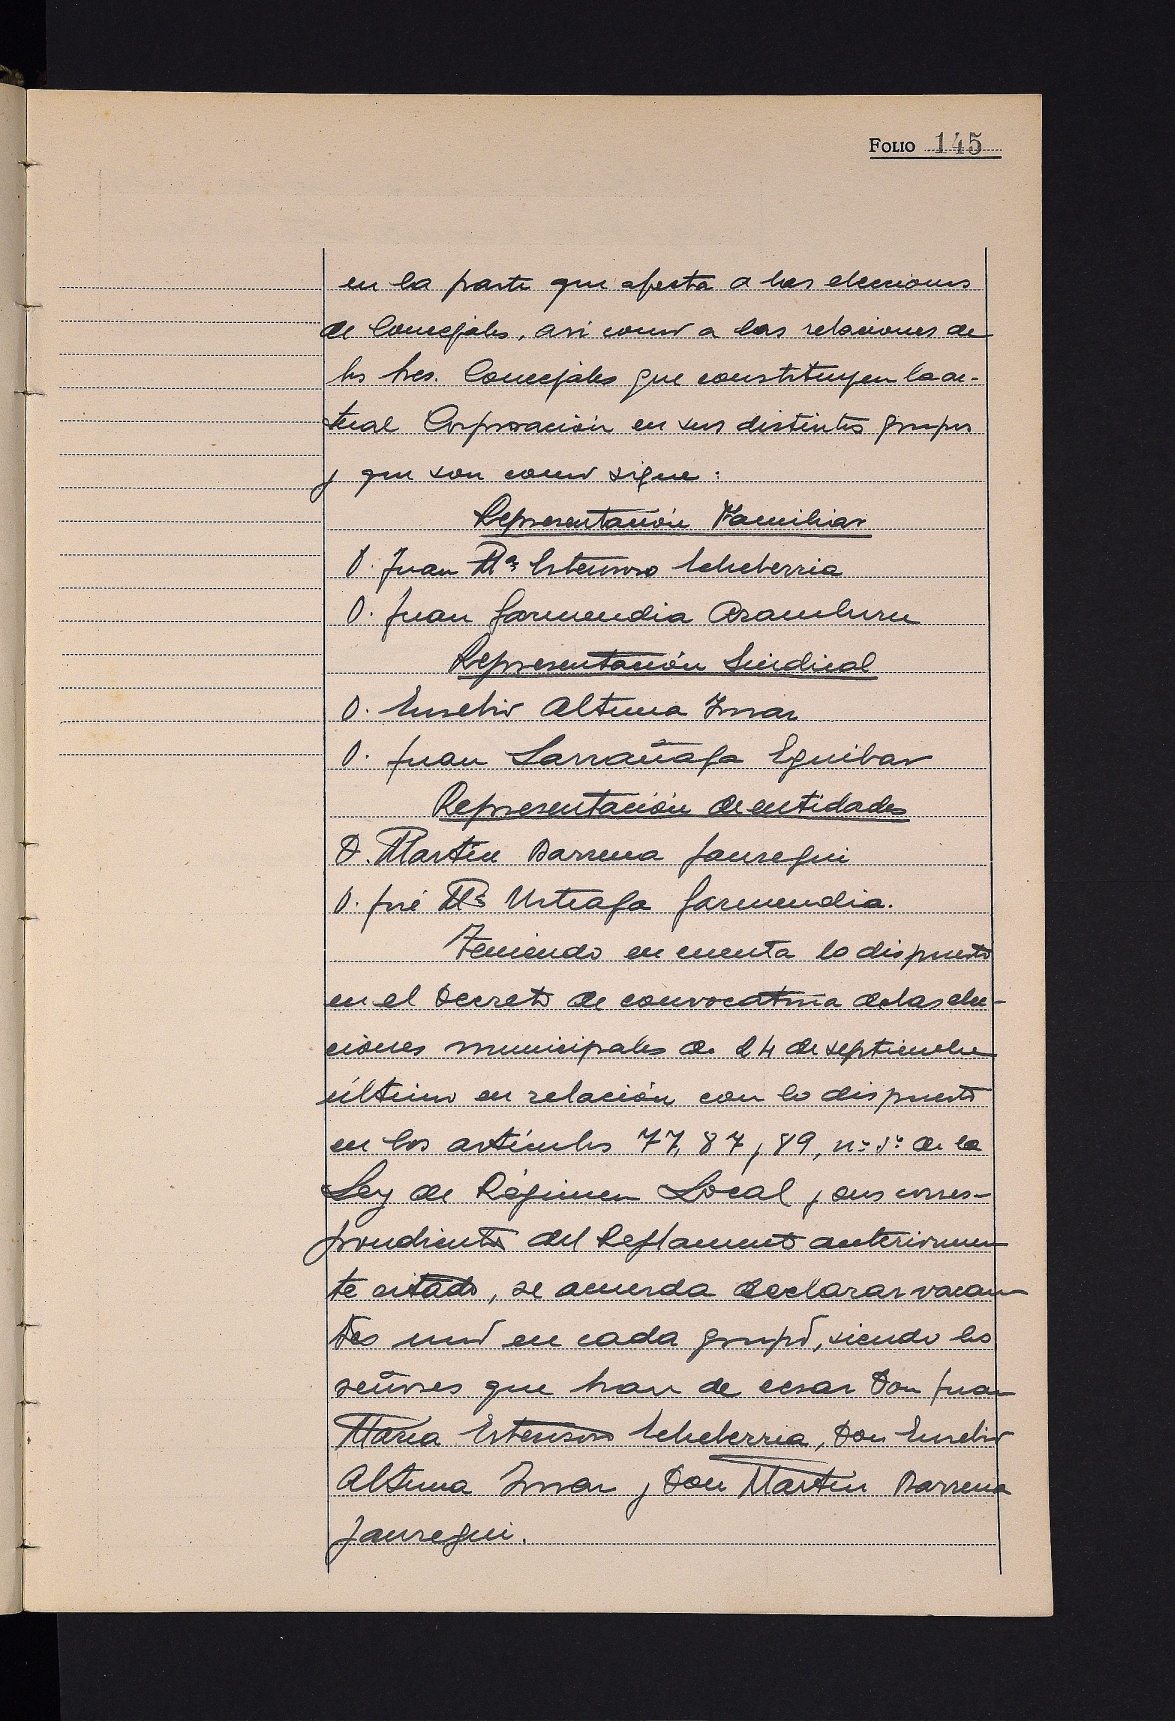 FOLIO 145
en la parte que afecta a las elecciones
de Concejales, asi como a las relaciones de
los Sres. Concejales que constituyen la ac-
tual Corporación en sus distintos grupos
y que son como sigue:
Representación Familiar
D. Juan Mª Estensoro Echeberria
D. Juan Garmendia Aramburu
Representación Sindical
D. Eusebio Altuna
D. Juan Larrañaga Eguibar
Representación de entidades
D. Martin Barrena Jauregui
D. José Mª Urteaga Garmendia.
Teniendo en cuenta lo dispuesto
en el Decreto de convocatoria de las elec-
ciones municipales de 24 de septiembre
último en relación con lo dispuesto
en los artículos 77, 87 y 89, nº 3º de la
Ley de Régimen Local y sus corres-
pondientes del Reglamento anteriormen
te citado, se acuerda declarar vacan
tes uno en cada grupo, siendo los
señores que han de cesar Don Juan
Maria Estensoro Echeberria, Don Eusebio
Altuna y Don Martin Barrena
Jauregui.